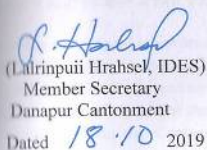 (Lalrinpuii Hrahsel, IDES)
Member Secretary
Danapur Cantonment
Dated 18.10 2019